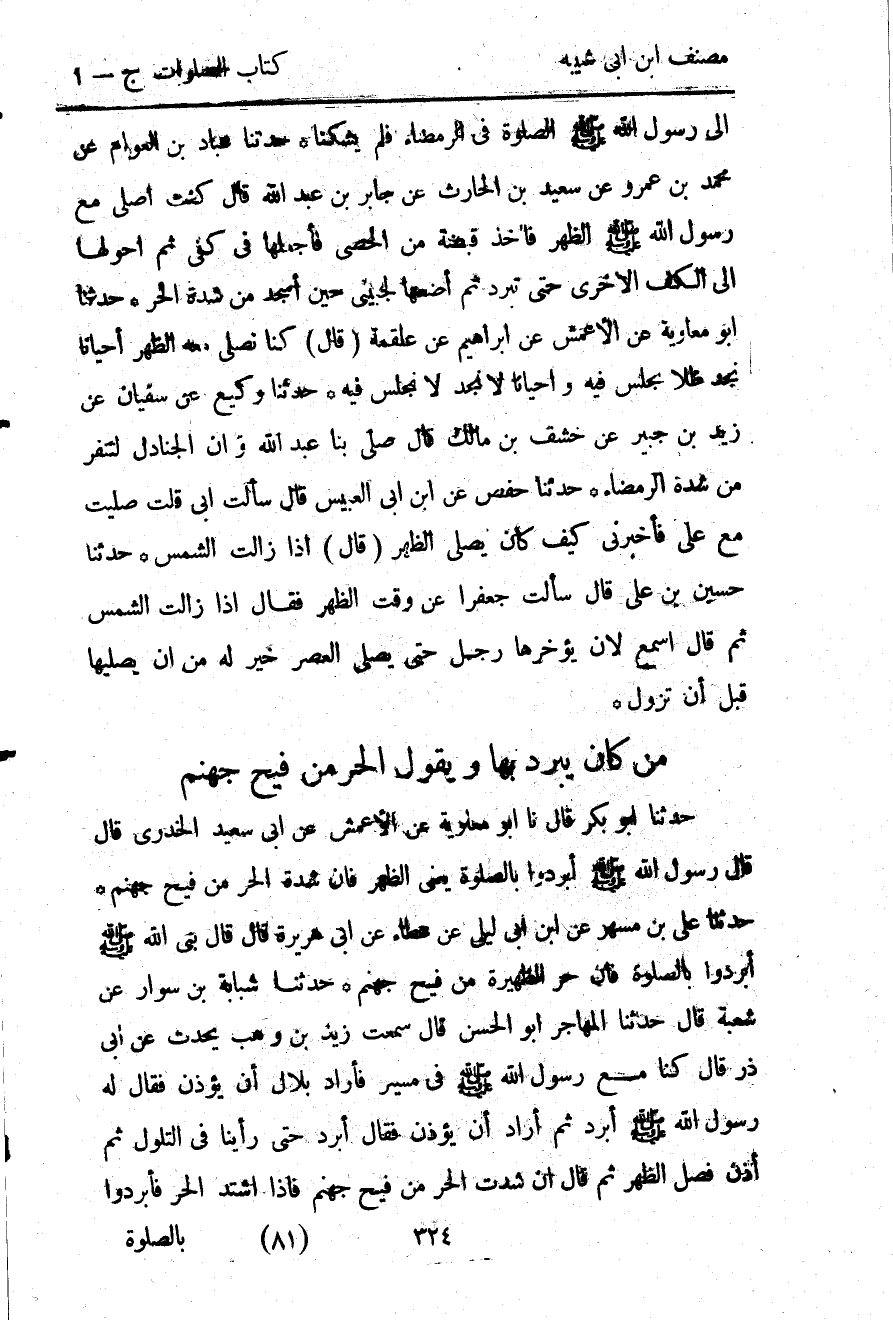 مصنف ابن ابى شيبه
كتاب الصلوات ج – ١
الى رسول الله ﷺ الصلوة فى الرمضاء فلم يشكنا * حدثنا عباد بن العوام عن
محمد بن عمرو عن سعيد بن الحارث عن جابر بن عبد الله قال كنت أصلى مع
رسول الله ﷺ الظهر فاخذ قبضة من الحصى فأجعلها فى كفى ثم احولها
الى الكف الاخرى حتى تبرد ثم أضعها لجبينى حين أسجد من شدة الحر * حدثنا
ابو معاوية عن الاعمش عن ابراهيم عن علقمة ( قال ) كنا نصلى معه الظهر أحيانا
نجد ظلا نجلس فيه و احيانا لا نجد لا نجلس فيه * حدثنا وكيع عن سفيان عن
زيد بن جبير عن خشف بن مالك قال صلى بنا عبد الله و ان الجنادل لتنفر
من شدة الرمضاء * حدثنا حفص عن ابن ابى العبيس قال سألت ابى قلت صليت
مع على فأخبرنى كيف كان يصلى الظهر ( قال ) اذا زالت الشمس * حدثنا
حسين بن على قال سألت جعفرا عن وقت الظهر فقال اذا زالت الشمس
ثم قال اسمع لان يؤخرها رجل حتى يصلى العصر خير له من ان يصليها
قبل أن تزول *
من كان يبرد بها و يقول الحر من فيح جهنم
حدثنا ابو بكر قال نا ابو معاوية عن الاعمش عن ابى سعيد الخدرى قال
قال رسول الله ﷺ أبردوا بالصلوة يعنى الظهر فان شدة الحر من فيح جهنم *
حدثنا على بن مسهر عن ابن ابى ليلى عن عطاء عن ابى هريرة قال قال نبى الله ﷺ
أبردوا بالصلوة فان حر الظهيرة من فيح جهنم * حدثنا شبابة بن سوار عن
شعبة قال حدثنا المهاجر ابو الحسن قال سمعت زيد بن وهب يحدث عن أبى
ذر قال كنا مع رسول الله ﷺ فى مسير فأراد بلالى أن يؤذن فقال له
رسول الله ﷺ أبرد ثم أراد أن يؤذن فقال أبرد حتى رأينا فى التلول ثم
أذن فصل الظهر ثم قال ان شدت الحر من فيح جهنم فاذا اشتد الحر فأبردوا
٣٢٤ (٨١) بالصلوة